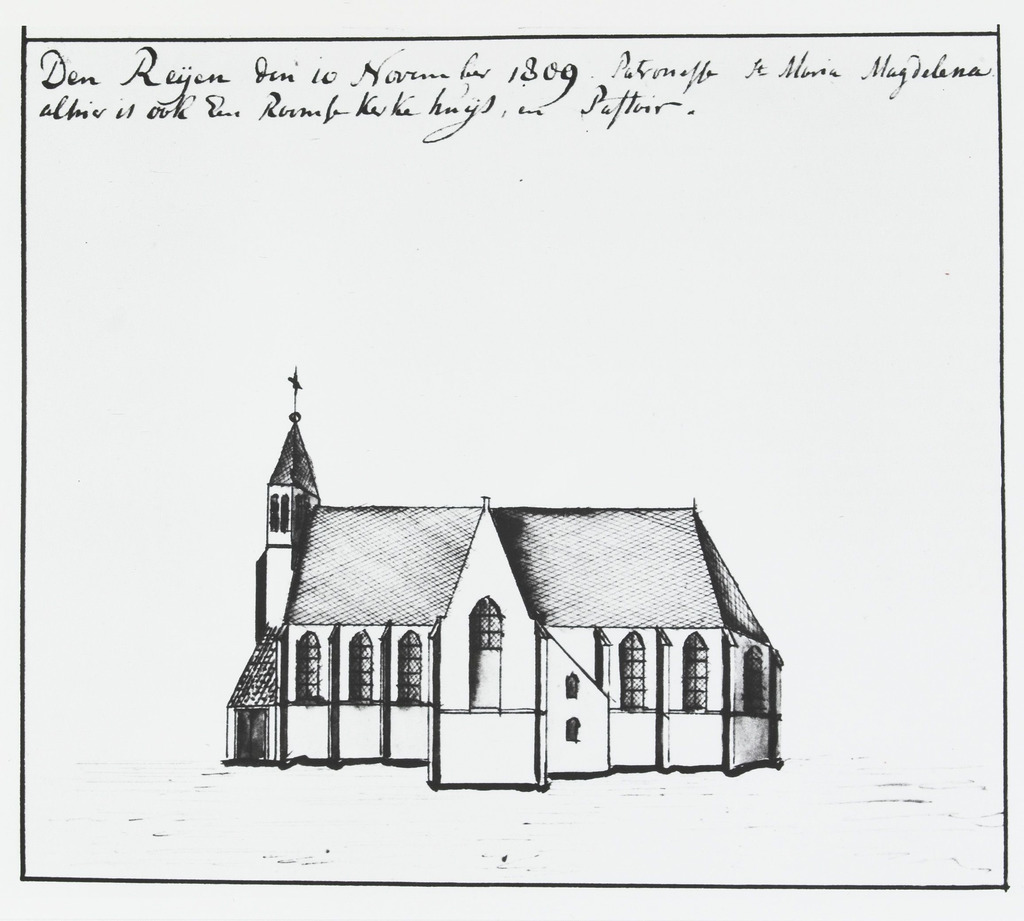 Den Reijen den 10 November 1809. Patronesse St Maria Magdelena
alhier is ook Een Roomse Kerke huijs, en Pastoir.